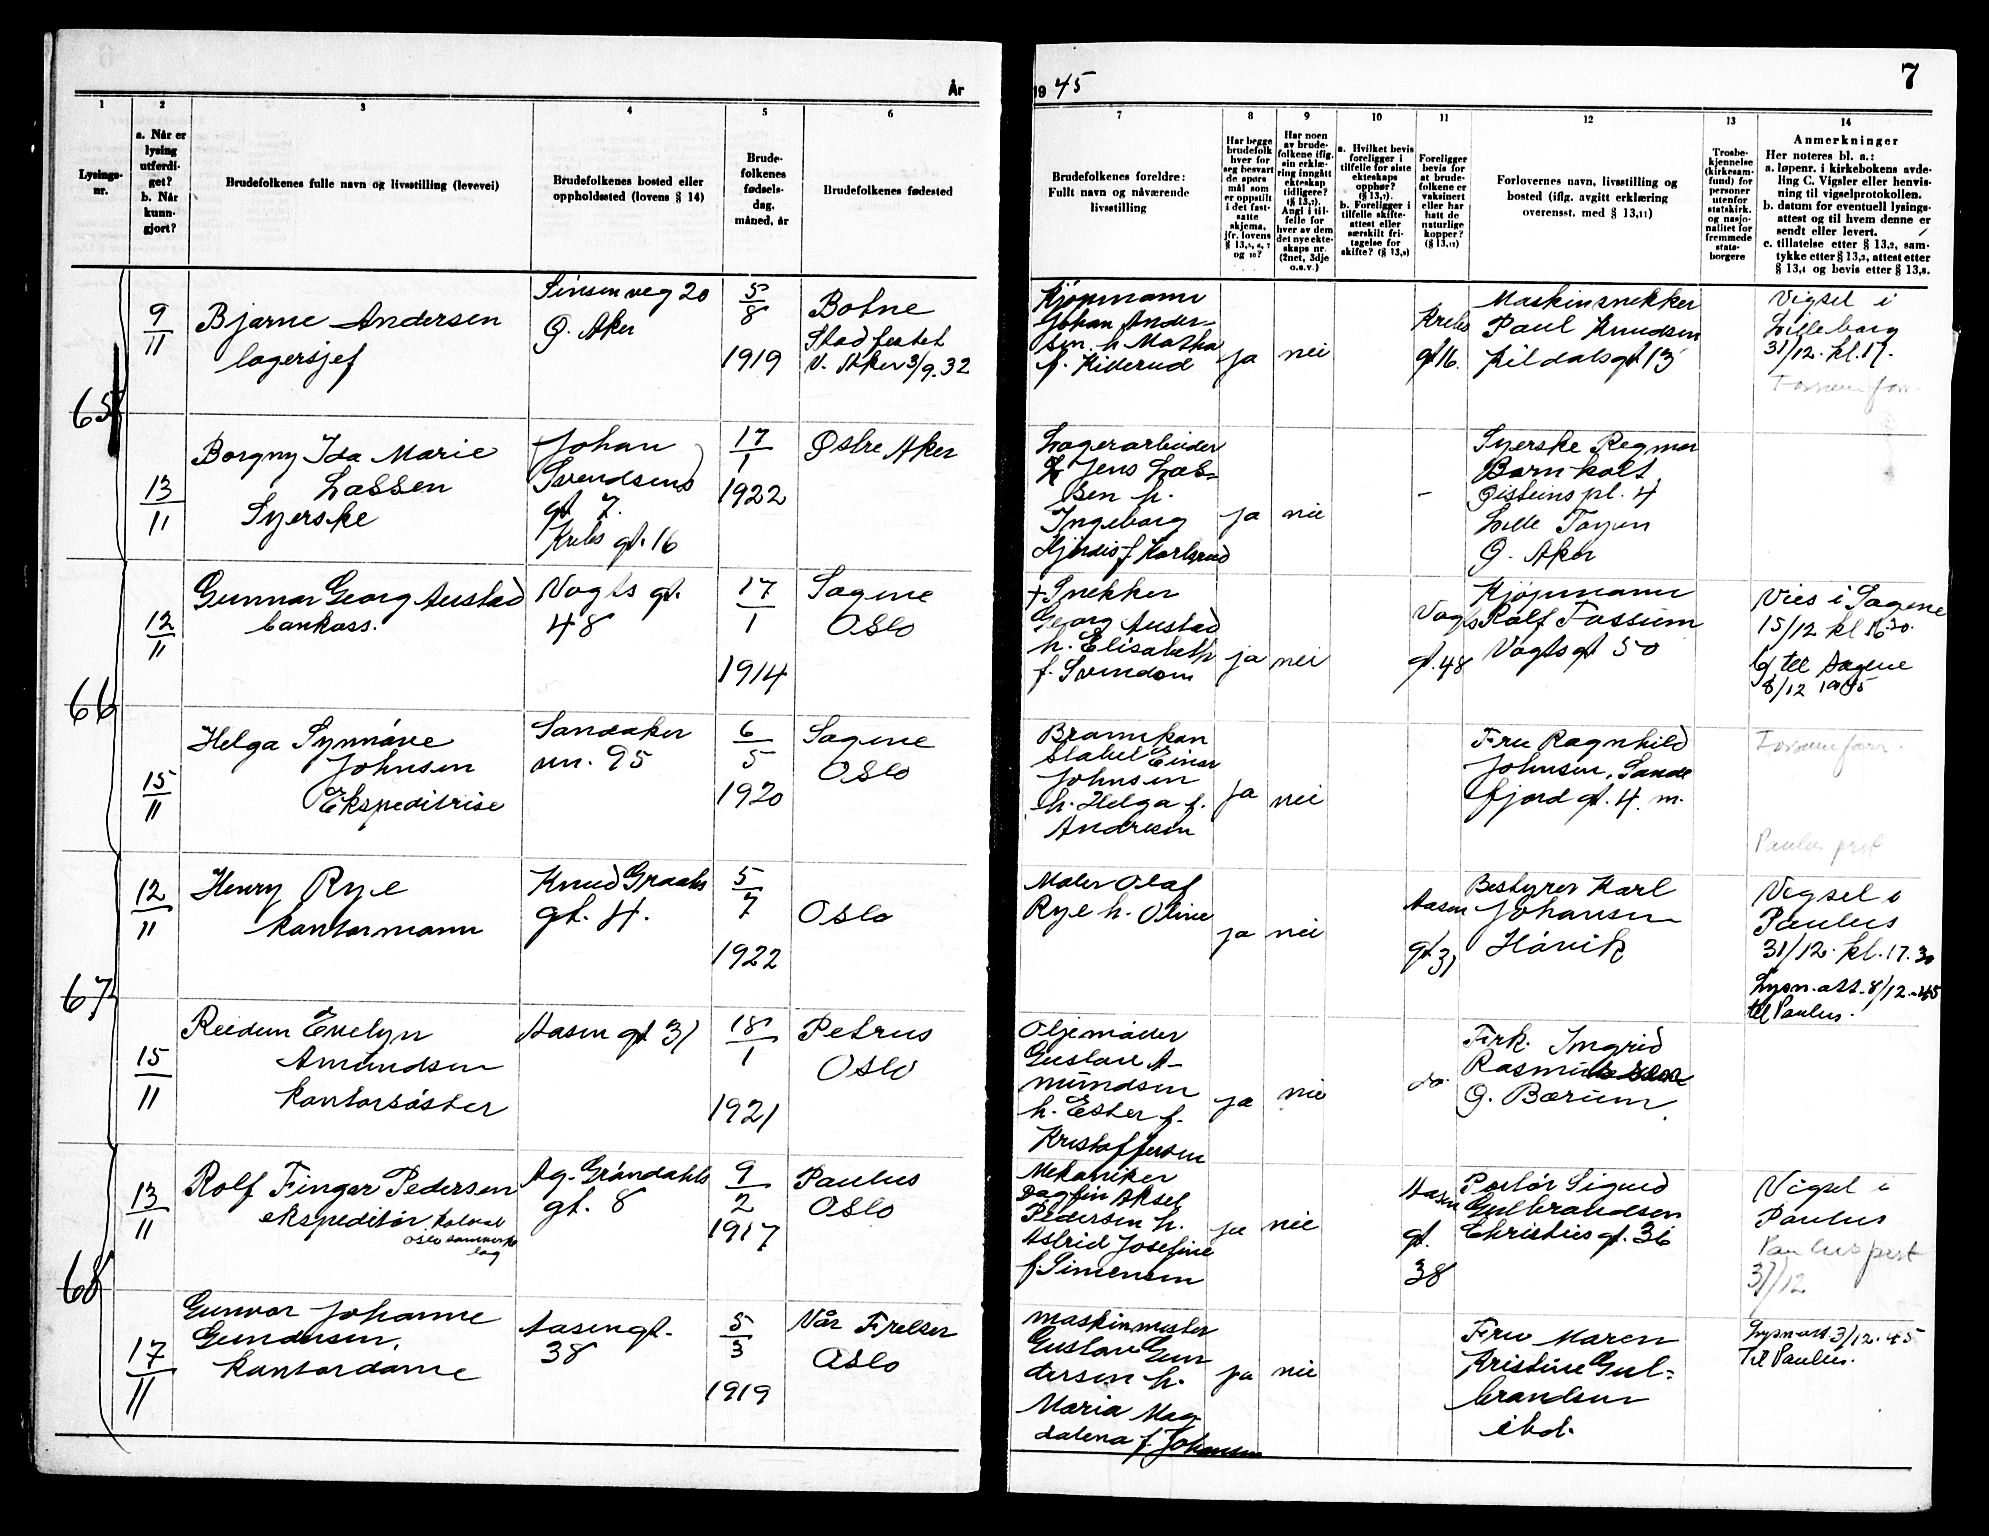 År
1945
7
1
2
3
4
5
6
7
8
9
10
11
12
13
14
Lysings-
nr.
a. Når er
lysing
utferdi-
get?
b. Når
kunn-
gjort?
Brudefolkenes fulle navn og livsstilling (levevei)
Brudefolkenes bosted eller
oppholdssted (lovens § 14)
Brude-
folkenes
fødsels-
dag,
måned, år
Brudefolkenes fødested
Brudefolkenes foreldre:
Fullt navn og nåværende
livsstilling
Har begge
brudefolk
hver for
seg besvart
de spørs-
mål som
er oppstilt
i det fast-
satte
skjema,
jfr. lovens
§ 13,5, 6, 7
og 10?
Har noen
av brude-
folkene iflg.
sin erklæ-
ring inngått
ekteskap
tidligere?
(§ 13,7).
Angi i til-
felle for
hver av dem
det nye ekte-
skaps nr.
(2net, 3dje
o.s.v.)
a. Hvilket bevis
foreligger i
tilfelle for siste
ekteskaps
opphør?
(§ 13,7).
b. Foreligger i
tilfelle skifte-
attest eller
særskilt fri-
tagelse for
skifte? (§ 13,8)
Foreligger
bevis for
at brude-
folkene er
vaksinert
eller har
hatt de
naturlige
kopper?
(§ 13,12)
Forlovernes navn, livsstilling og
bosted (iflg. avgitt erklæring
overensst. med § 13,11)
Trosbe-
kjennelse
(kirkesam-
fund) for
personer
utenfor
statskirk.
og nasjo-
nalitet for
fremmede
stats-
borgere
Anmerkninger
Her noteres bl. a.:
a. løpenr. i kirkebokens avde-
ling C. Vigsler eller henvis-
ning til vigselprotokollen.
b. datum for eventuell lysings-
attest og til hvem denne er
sendt eller levert.
c. tillatelse etter § 13,2, sam-
tykke etter § 13,3, attest etter
§ 13,4 og bevis etter § 13,8.
65
9/11
Bjarne Andersen
lagersjef
Sinsenveg 20
Ø. Aker
5/8
1919
Botne
Stadfestet
V. Aker 3/9.32
Kjøpmann
Johan Ander-
sen h. Matha
f. Kiverud
ja
nei
Krebs
gt 16.
Maskinsnekker
Paul Knudsen
Kildalsgt 13
Vigsel i
Lilleborg
31/12. kl. 17.
13/11
Borgny Ida Marie
Lassen
Syerske
Johan
Svendsens
gt 7.
Krebs gt. 16
17/1
1922
Østre Aker
Lagerarbeider
Jens Las-
sen h.
Ingeborg
Hjørdis f. Karlsrud
ja
nei
-
Syerske Regmor
Barnholt
Øisteins pl. 4
Lille Tøyen
Ø. Aker
66
12/11
Gunnar Georg Austad
bankass.
Vogts gt.
48
17/1
1914
Sagene
Oslo
+ Snekker
Georg Austad
h. Elisabeth
f. Svendsen
ja
nei
Vogts
gt. 48
Kjøpmann
Rolf Fossum
Vogts gt 50
Vies i Sagene
15/12 kl 16.30.
til Sagene
8/12 1945
15/11
Helga Synnöve
Johnsen
Ekspeditrise
Sandaker
vn. 95
6/5
1920
Sagene
Oslo
Brannkon
stabel Einar
Johnsen
h. Helga f.
Andresen
ja
nei
Fru Ragnhild
Johnsen, Sande
fjord gt. 4. m.
67
12/11
Henry Rye
kontormann
Knud Graahs
gt. 4.
5/7
1922
Oslo
Maler Olaf
Rye h. Oline
ja
nei
Aasen
gt 31
Bestyrer Karl
Johansen
Hövik
Vigsel i
Paulus
31/12. kl. 17.30
Lysn. att. 8/12.-45
til Paulus.
15/11
Reidun Evelyn
Amundsen
kontorsöster
Aasen gt 31
18/1
1921
Petrus
Oslo
Oljemöller
Gustav A-
mundsen
h. Ester f.
Kristoffersen
ja
nei
do.
Frk. Ingrid
Rasmussen
Ø. Bærum.
68
13/11
Rolf Finger Pedersen
ekspeditör
Oslo samvirke
lag
Ag. Gröndahls
gt. 8
9/2
1917
Paulus
Oslo
Mekaniker
Dagfin Aksel
Pedersen h.
Astrid Josefine
f. Simensen
ja
nei
Aasen
gt.
38
Portör Sigurd
Gulbrandsen
Christies gt. 36
Vigsel i
Paulus
Paulus prest
31/12
17/11
Gunvor Johanne
Gundersen,
kontordame
Aasengt.
38
5/3
1919
Vår Frelser
Oslo
Maskinmester
Gustav Gun
dersen h.
Maria Mag
dalena f. Johansen
ja
nei
Fru Maren
Kristine Gul-
brandsen
ibd.
Lysn att 3/12.45
til Paulus.